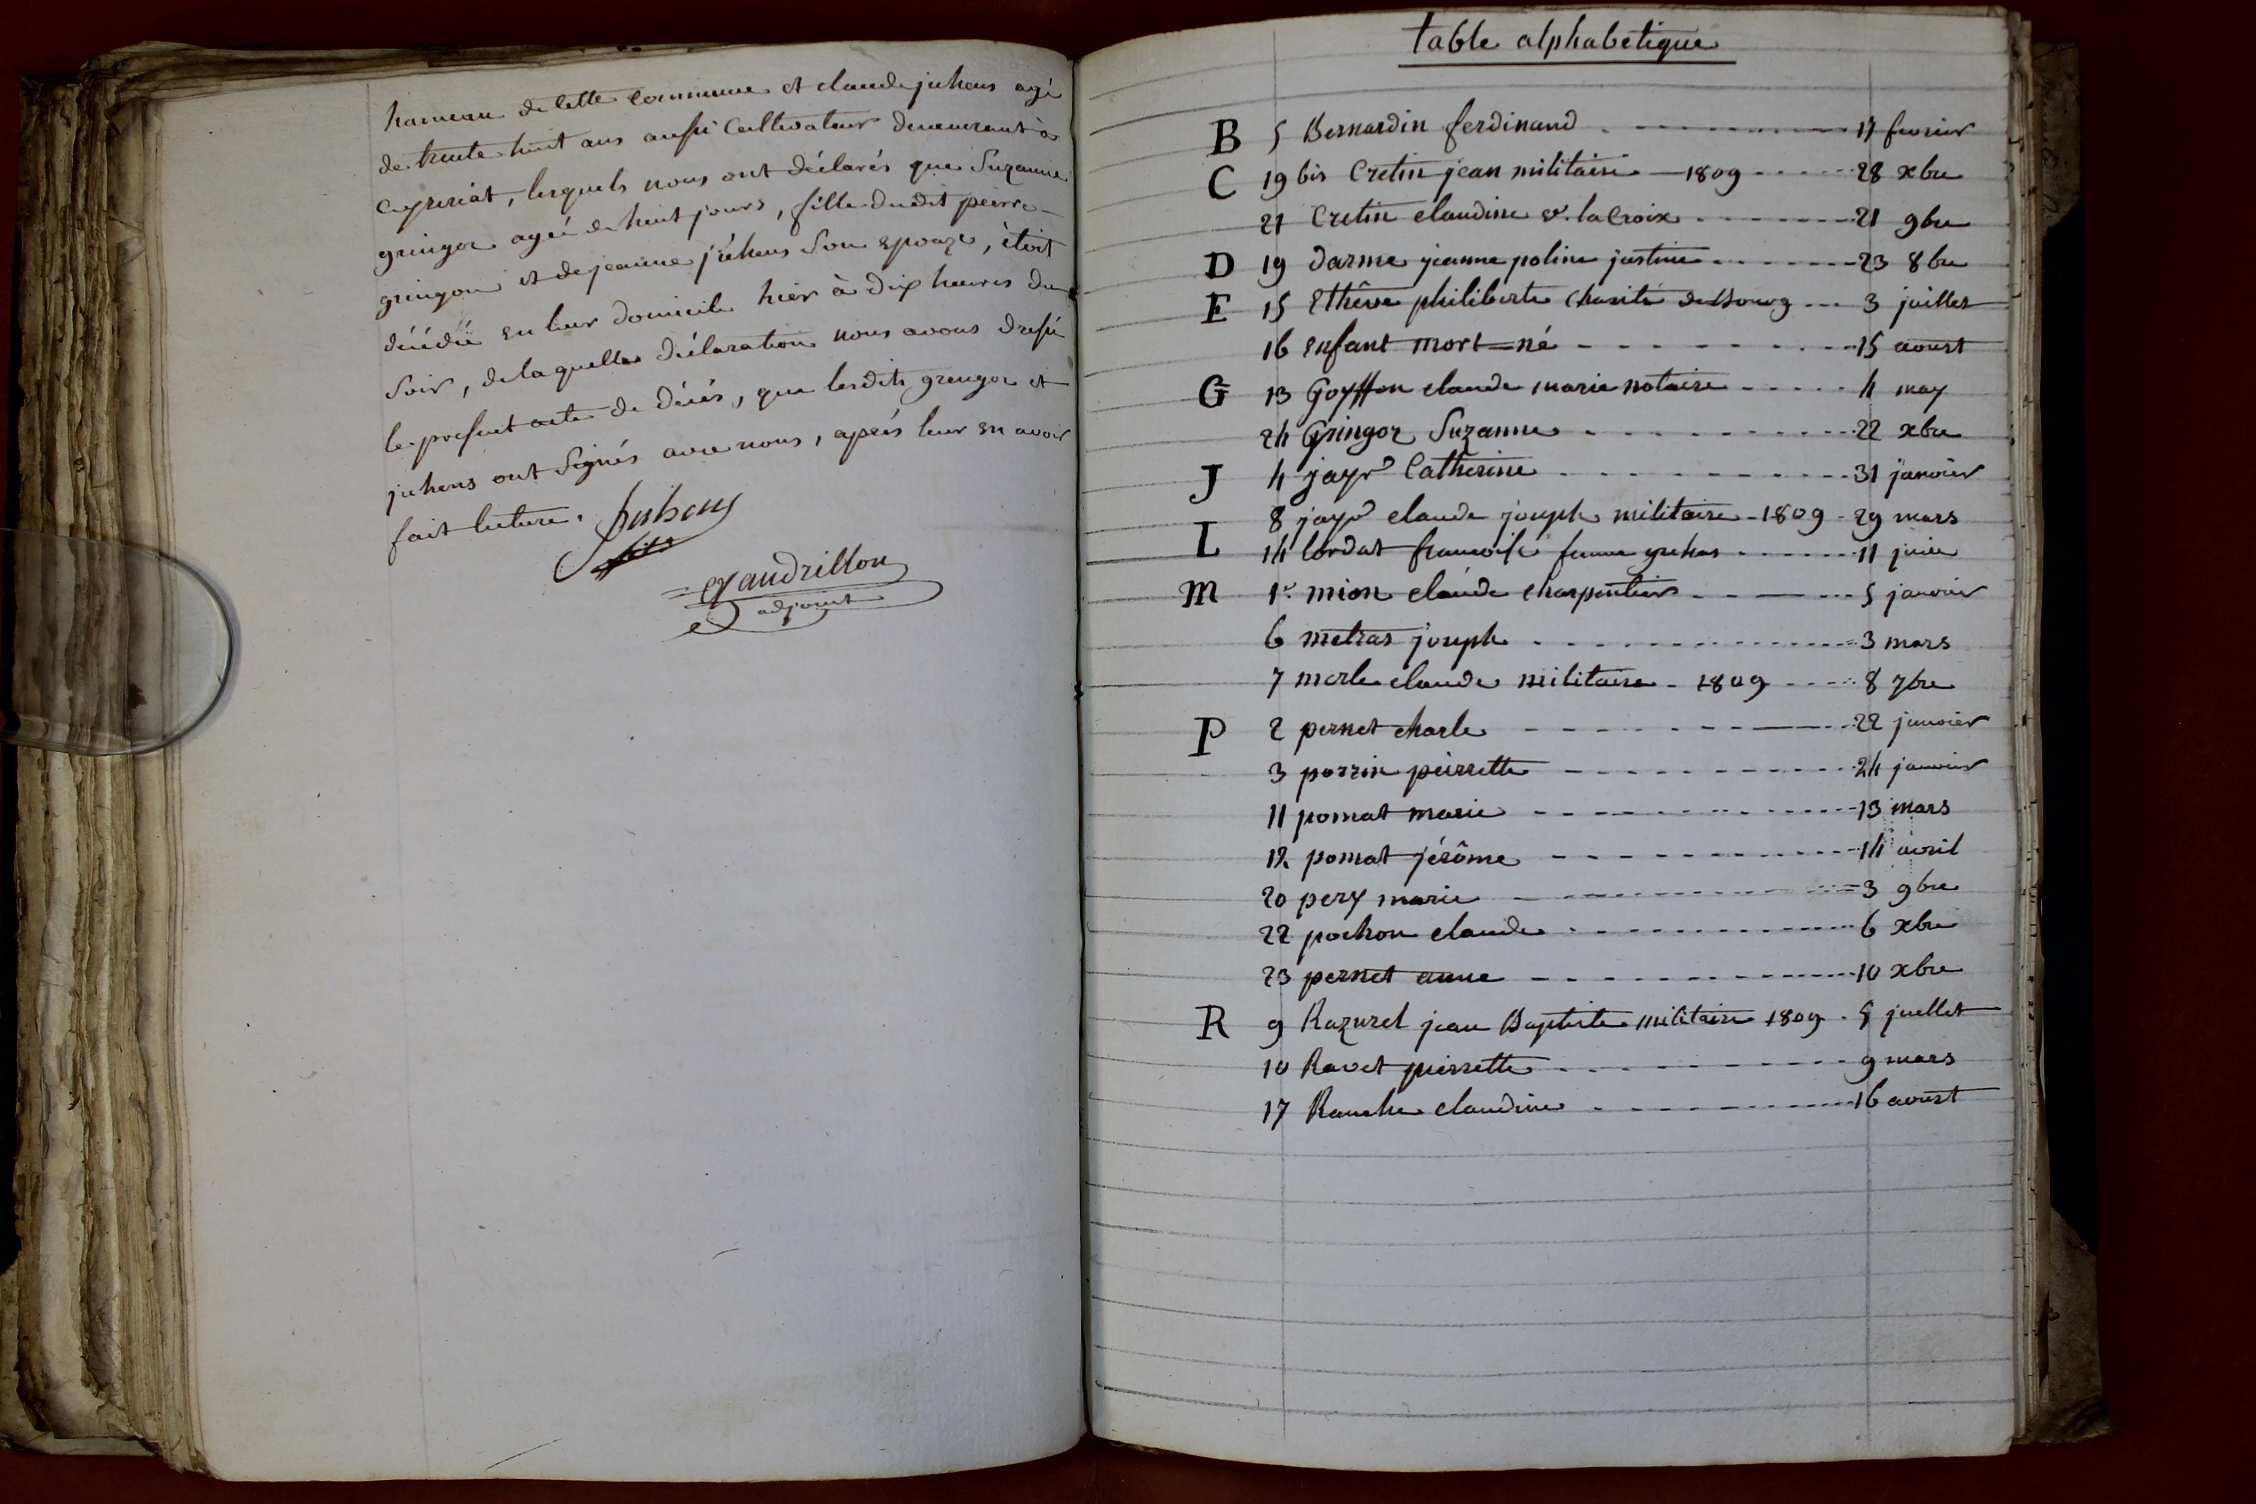 hameau de cette commune et claude juhens agé
de trente huit ans aussi cultivateur demeurant à
ceyseriat, lesquels nous ont déclarés que Suzanne
gringoz agée de huit jours, fille dudit pierre
gringoz et de jeanne juhens son epouze, étoit
décédée en leur domicile hier à dix heures du
soir, de laquelle déclaration nous avons dressé
le present acte de décés, que lesdits gringoz et
juhens ont signés avec nous, aprés leur en avoir
fait lecture.
juhens
fils
gandrillon
adjoint
table alphabetique
B 5 Bernardin ferdinand 17 fevrier
C 19 bis Cretin jean militaire 1809 28 xbre
21 Cretin claudine ve. la Croix 21 9bre
D 19 darme jeanne poline justine 23 8bre
E 15 Ethêve philiberte charité de Bourg 3 juillet
16 enfant mort-né 15 aoust
G 13 Goyffon claude marie notaire 4 may
24 Gringoz Suzanne 22 xbre
J 4 jayr Catherine 31 janvier
8 jayr claude joseph militaire 1809 29 mars
L 14 lordat francoise femme 11 juin
M 1er mion claude charpentier 5 janvier
6 metras joseph 3 mars
7 merle claude militaire 1809 8 7bre
P 2 pernet charle 22 janvier
3 perrin pierrette 24 janvier
11 pomat marie 13 mars
12 pomat jérôme 14 avril
20 pery marie 3 9bre
22 pochon claude 6 xbre
23 pernet anne 10 xbre
R 9 Razurel jean Baptiste militaire 1809 5 juillet
10 Ravet pierrette 9 mars
17 Ranche claudine 16 aoust